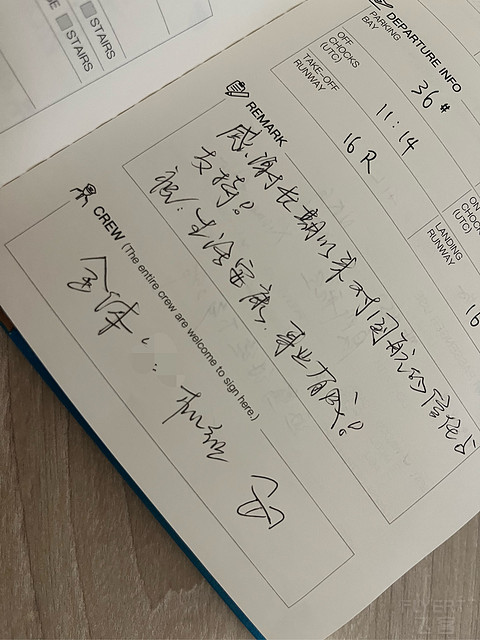 STAIRS
STAIRS
DEPARTURE INFO
PARKING
BAY
36#
OFF
CHOCKS
(UTC)
11:14
TAKE-OFF
RUNWAY
16R
ON
CHOCK
(UTC)
LANDING
RUNWAY
16
REMARK
感谢长期以来对国航的信任与
支持。
祝:生活安康、事业有成!
CREW (The entire crew are welcome to sign here.)
全体
机组
FLYERT